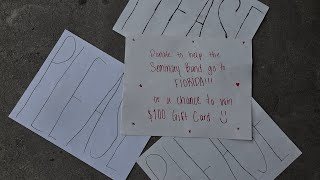 PLEASE
Donate to help the
Seminary Band go to
FLORIDA!!!
or a chance to win
$100 Gift Card :)
PLEASE
PLEASE